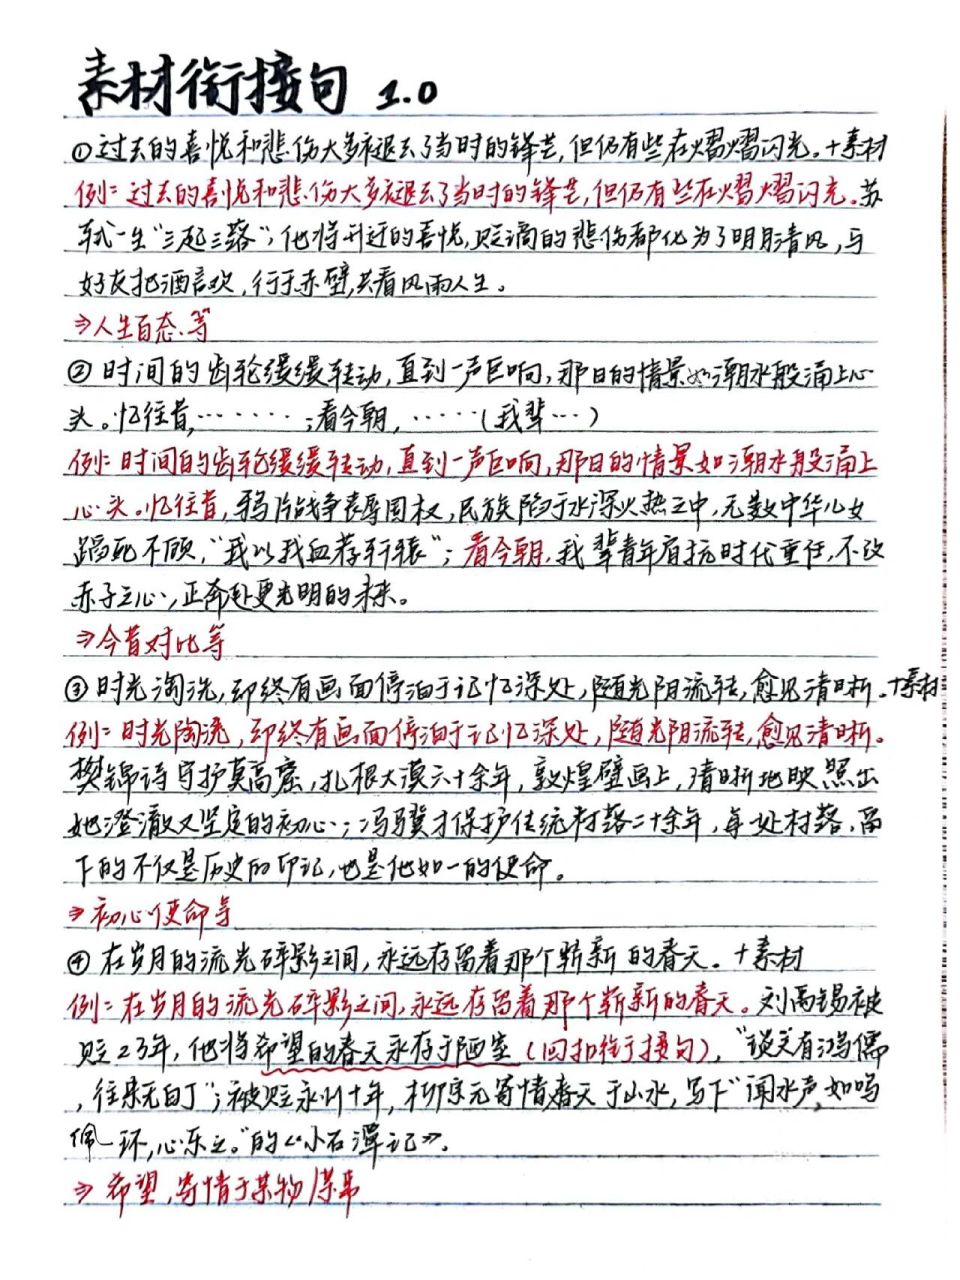 素材衔接句 1.0
①过去的喜悦和悲伤大多褪去了当时的锋芒,但仍有些在熠熠闪光。+素材
例:过去的喜悦和悲伤大多褪去了当时的锋芒,但仍有些在熠熠闪光。苏
轼一生“三起三落”,他将升迁的喜悦,贬谪的悲伤都化为了明月清风,与
好友把酒言欢,行于赤壁,共看风雨人生。
⇒人生百态、等
②时间的齿轮缓缓转动,直到一声巨响,那日的情景如潮水般涌上心
头。忆往昔,········;看今朝,·····(我辈···)
例:时间的齿轮缓缓转动,直到一声巨响,那日的情景如潮水般涌上
心头。忆往昔,鸦片战争丧辱国权,民族陷于水深火热之中,无数中华儿女
蹈死不顾,“我以我血荐轩辕”;看今朝,我辈青年肩抗时代重任,不改
赤子之心,正奔赴更光明的未来。
⇒今昔对比等
③时光淘洗,却终有画面停泊于记忆深处,随光阴流转,愈见清晰。+素材
例:时光陶洗,却终有画面停泊于记忆深处,随光阴流转,愈见清晰。
樊锦诗守护莫高窟,扎根大漠六十余年,敦煌壁画上,清晰地映照出
她澄澈又坚定的初心;冯骥才保护传统村落二十余年,每处村落,留
下的不仅是历史的印记,也是他如一的使命。
⇒初心使命等
④在岁月的流光碎影之间,永远存留着那个崭新的春天。+素材
例:在岁月的流光碎影之间,永远存留着那个崭新的春天。刘禹锡被
贬23年,他将希望的春天永存于陋室(回扣衔接句),“谈笑有鸿儒
,往来无白丁”;被贬永州十年,柳宗元寄情春天于山水,写下“闻水声,如鸣
佩环,心乐之。”的《小石潭记》。
⇒希望,寄情于某物/某事